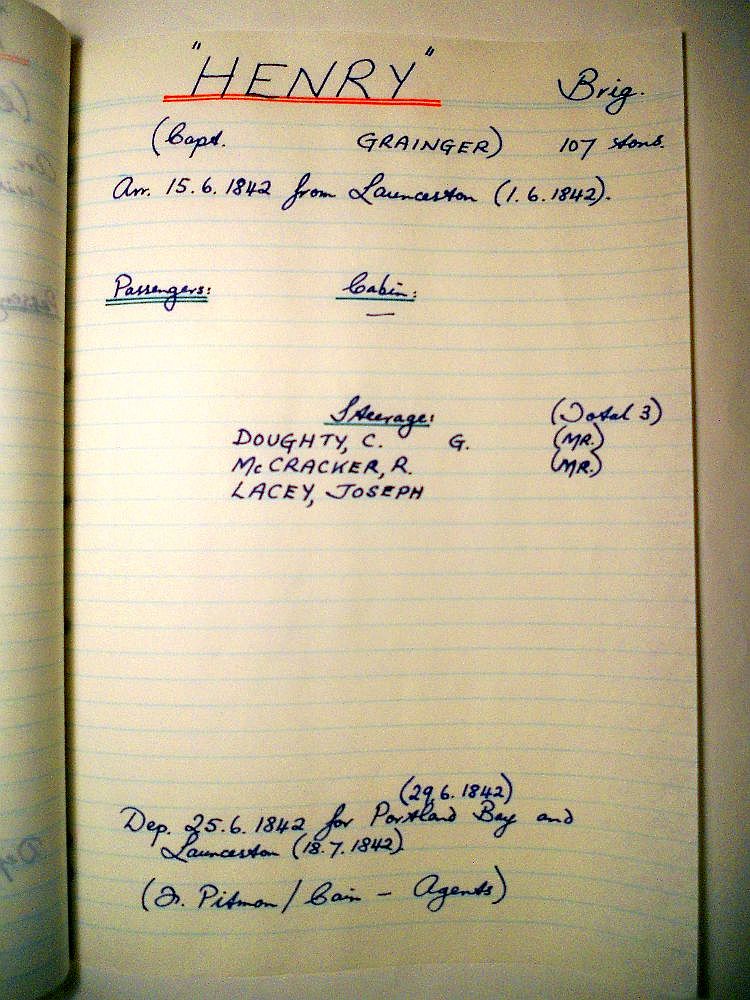 "HENRY" Brig.
(Capt. GRAINGER) 107 tons.
Arr. 15.6.1842 from Launceston (1.6.1842).
Passengers: Cabin:
—
Steerage: (Total 3)
DOUGHTY, C. G. (MR.)
McCRACKER, R. (MR.)
LACEY, JOSEPH
(29.6.1842)
Dep. 25.6.1842 for Portland Bay and
Launceston (18.7.1842)
Pitman / Cain - Agents)